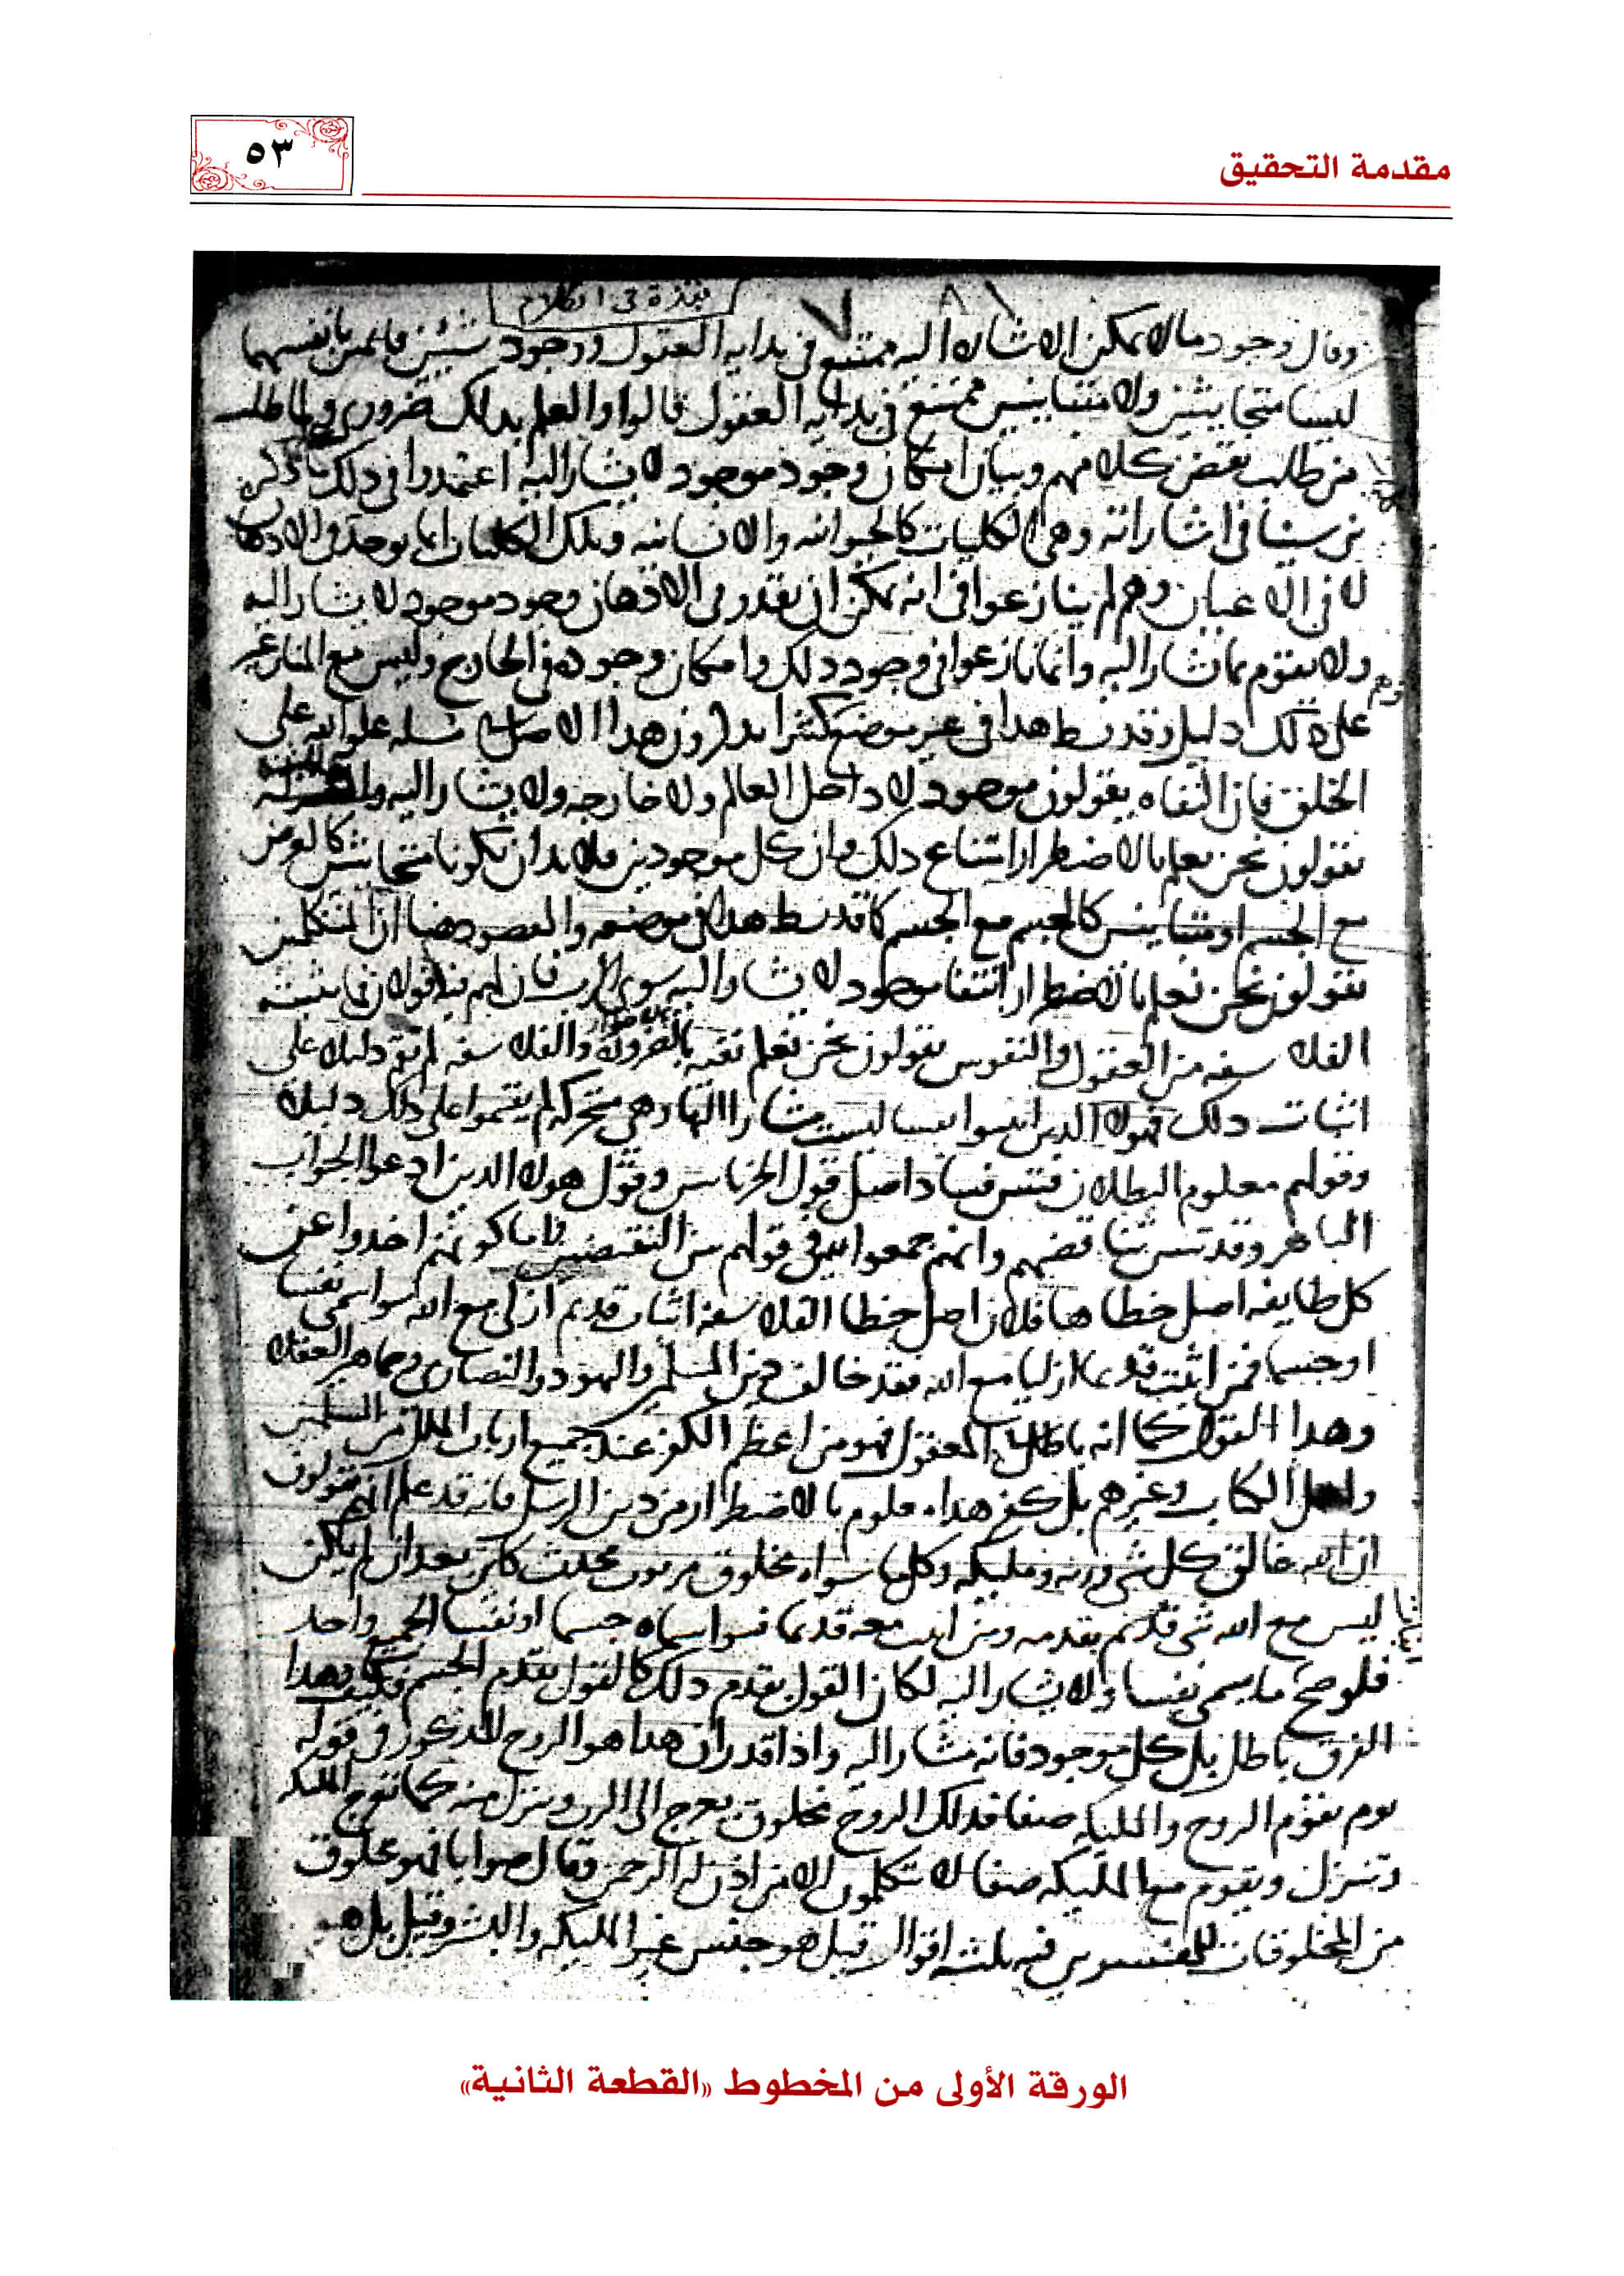 مقدمة التحقيق
٥٣
نبذة في الكلام
وقال وجود مالا يمكن الاشاره اليه ممتنع في بدايه العقول ووجود شيئين قايمين بانفسهما
ليسا متحايثين ولا متباينين ممتنع في بدايه العقول قالوا والعلم بذلك ضروري ولما طلب
من طلب نقض كلامهم وبيان امكان وجود موجود لا يشار اليه اعتمدوا في ذلك ما ذكره
بن سينا في اشاراته وهي الكليات كالحيوانيه والانسانيه وتلك الكليات انما توجد في الاذهان
لا في الاعيان وهم لم ينازعوا في انه يمكن ان يقدر في الاذهان وجود موجود لا يشار اليه
ولا يقوم بما يشار اليه وانما نازعوا في وجود ذلك وامكان وجوده في الخارج وليس مع المنازعين
على ذلك دليل وقد بسط هذا في غير موضع كثيرا هذا الاصل مسله علو الله على
الخلق فان النفاه يقولون موجود لا داخل العالم ولا خارجه ولا يشار اليه
يقولون نحن نعلم بالاضطرار امتناع ذلك وان كل موجودين فلا بد ان يكونا متحايثين كالعرض
مع الجسم او متباينين كالجسم مع الجسم كما قد بسط هذا في موضعه والمقصود هنا ان المتكلمين
يقولون نحن نعلم بالاضطرار انتفا موجود لا يشار اليه سوى الرب فان لهم فيه قولان فما يثبته
الفلاسفه من العقول والنفوس يقولون نحن نعلم نفيه بالضروره والفلاسفه لم تقم دليلا على
اثبات ذلك فهولا الذين اثبتوا نفسا ليست مشارا اليها وهي متحركه لم يقيموا على ذلك دليلا
وقولهم معلوم البطلان فتبين فساد اصل قول الحرنانيين وقول هولا الذين ادعوا الجواب
الباهر وقد تبين تناقضهم وانهم جمعوا في قولهم بين النقيضين اخذوا عن
كل طايفه اصل خطاها فان اصل خطا الفلاسفه اثبات قديم ازلي مع الله سوا سمي نفسا
او جسما فمن اثبت قديما ازليا مع الله فقد خالف دين المسلمين واليهود والنصارى وجماهير العقلا
وهذا القول كما انه باطل في المعقول فهو من اعظم الكفر عند جميع ارباب الملل من المسلمين
واهل الكتاب وغيرهم بل كفر هذا معلوم بالاضطرار من دين الرسل فانه قد علم انهم يقولون
ان الله خالق كل شي وربه ومليكه وكل ما سواه مخلوق مربوب محدث كاين بعد ان لم يكن
ليس مع الله شي قديم بقدمه ومن اثبت معه قديما فسوا سماه جسما او نفسا الجميع واحد
فلو صح ما يسمى نفسا ولا يشار اليه لكان القول بقدم ذلك كالقول بقدم الجسم فكيف وهذا
الفرق باطل بل كل موجود فانه مشار اليه واذا قدر ان هذا هو الروح المذكور في قوله
يوم يقوم الروح والمليكه صفا فذلك الروح مخلوق يعرج الى الرب وينزل منه كما تعرج المليكه
وتنزل ويقوم مع المليكه صفا لا يتكلمون الا من اذن له الرحمن وقال صوابا فهو مخلوق
من المخلوقات للمفسرين فيه ثلثه اقوال قيل هو جنس غير المليكه والبشر وقيل بل هو
الورقة الأولى من المخطوط «القطعة الثانية»